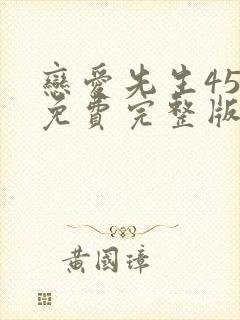 戀愛先生45
免費完整版
黃國璋